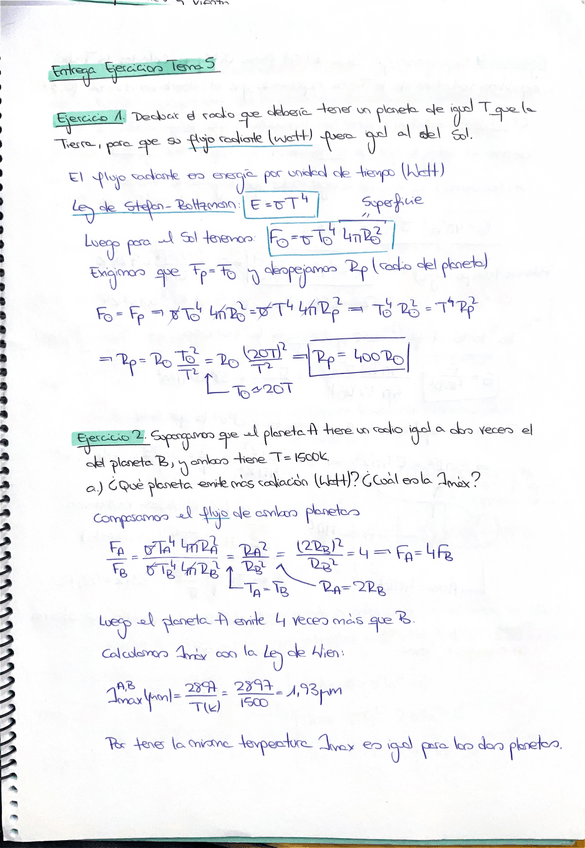 y Viento
Entrega Ejercicios Tema 5
Ejercicio 1. Deducir el radio que debería tener un planeta de igual T que la
Tierra, para que su flujo radiante (Watt) fuera igal al del Sol.
El flujo radiante es energía por unidad de tiempo (Watt)
Ley de Stefan-Boltzmann: E = σT⁴ Superficie
Luego para el Sol tenemos: F⊙ = σT⊙⁴ 4πR⊙²
Exigimos que Fp = F⊙ y despejamos Rp (radio del planeta)
F⊙ = Fp → σT⊙⁴ 4πR⊙² = σT⁴ 4πRp² → T⊙⁴ R⊙² = T⁴ Rp²
→ Rp = R⊙ T⊙²/T² = R⊙ (20T)²/T² → Rp = 400R⊙
T⊙≃20T
Ejercicio 2. Supongamos que el planeta A tiene un radio igal a dos veces el
del planeta B, y ambos tiene T = 1500K.
a) ¿Qué planeta emite más radiación (Watt)? ¿Cuál es la λmáx?
Comparamos el flujo de ambos planetas
FA/FB = σTA⁴ 4πRA²/σTB⁴ 4πRB² = RA²/RB² = (2RB)²/RB² = 4 → FA = 4FB
TA = TB RA = 2RB
Luego el planeta A emite 4 veces más que B.
Calculamos λmáx con la Ley de Wien:
λmax^A,B (μm) = 2897/T(K) = 2897/1500 = 1,93 μm
Por tener la misma temperatura λmax es igal para los dos planetas.